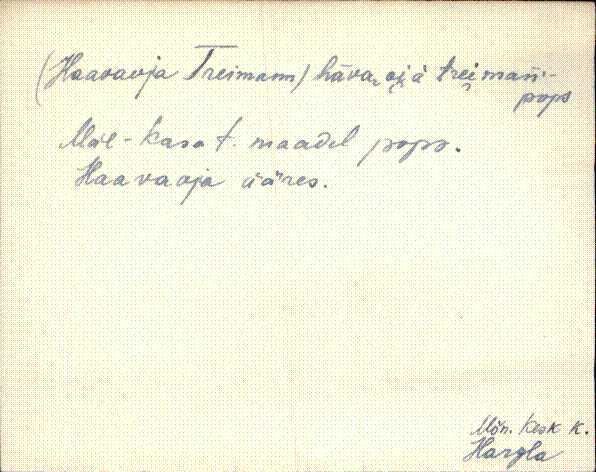 (Haavaoja Treimann) hāva͔oi̯ä trei̯mań-
pops
Mäe-Kasa t. maadel pops.
Haavaoja ääres.
Mõn. Kesk k.
Hargla